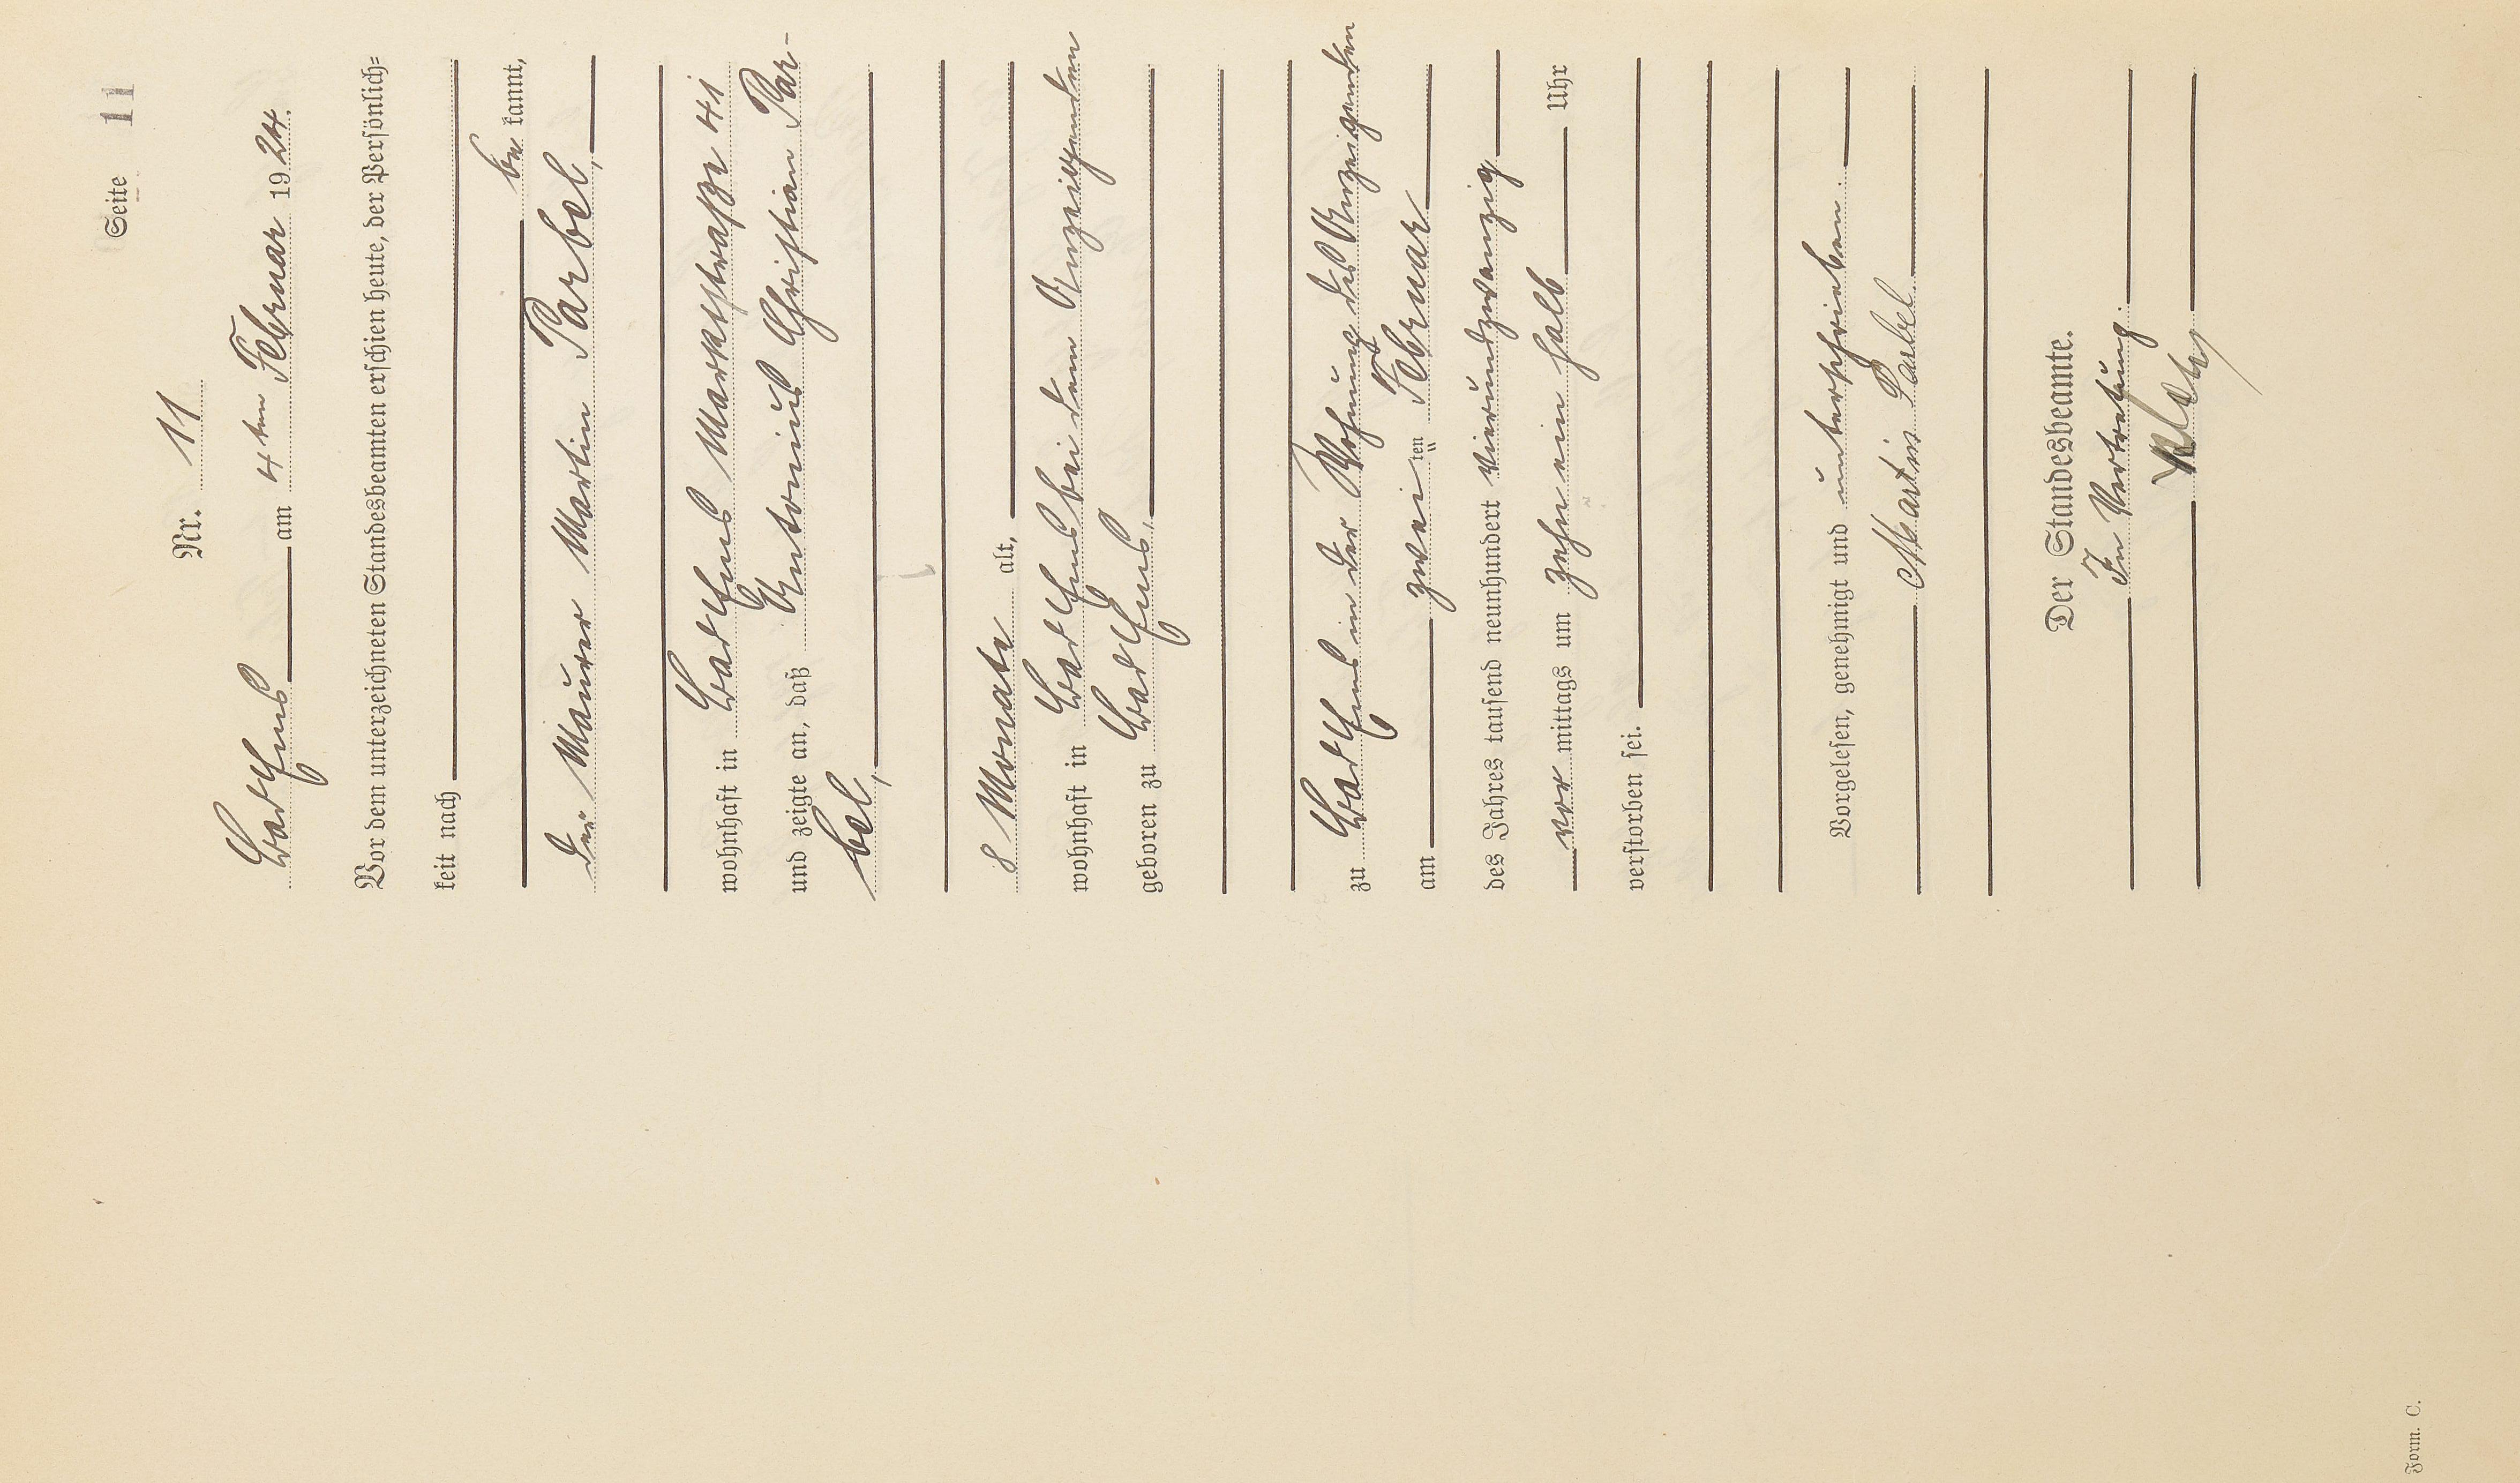 Seite 11
Nr. 11
Bad Ems am 4ten Februar 1924.
Vor dem unterzeichneten Standesbeamten erschien heute, der Persönlich=
keit nach
be kannt,
der Maurer Martin Parbel,
wohnhaft in Bad Ems Marktstraße 41
und zeigte an, daß Antonius Christian Par-
bel,
8 Monate alt,
wohnhaft in Bad Ems bei dem Anzeigenden
geboren zu Bad Ems,
zu Bad Ems in der Wohnung des Anzeigenden
am zwei ten Februar
des Jahres tausend neunhundert vierundzwanzig
vor mittags um zehn ein halb Uhr
verstorben sei.
Vorgelesen, genehmigt und unterschrieben.
Martin Parbel
Der Standesbeamte.
In Vertretung.
Form. C.